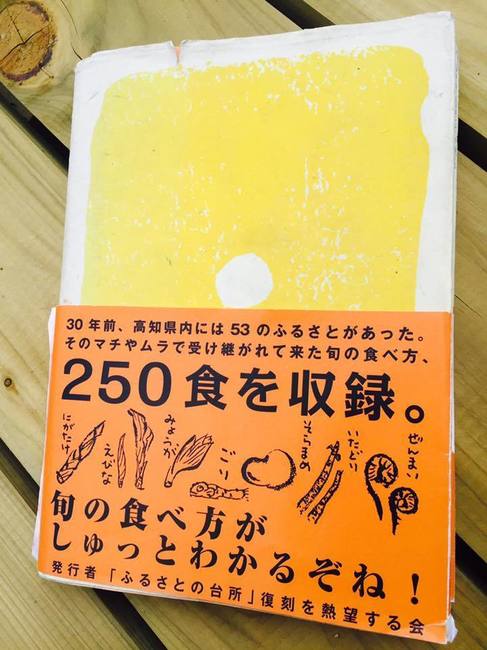 30年前、高知県内には53のふるさとがあった。
そのマチやムラで受け継がれて来た旬の食べ方、
250食を収録。
にがたけ
えびな
みょうが
ごり
そらまめ
いたどり
ぜんまい
旬の食べ方が
しゅっとわかるぞね!
発行者「ふるさとの台所」復刻を熱望する会